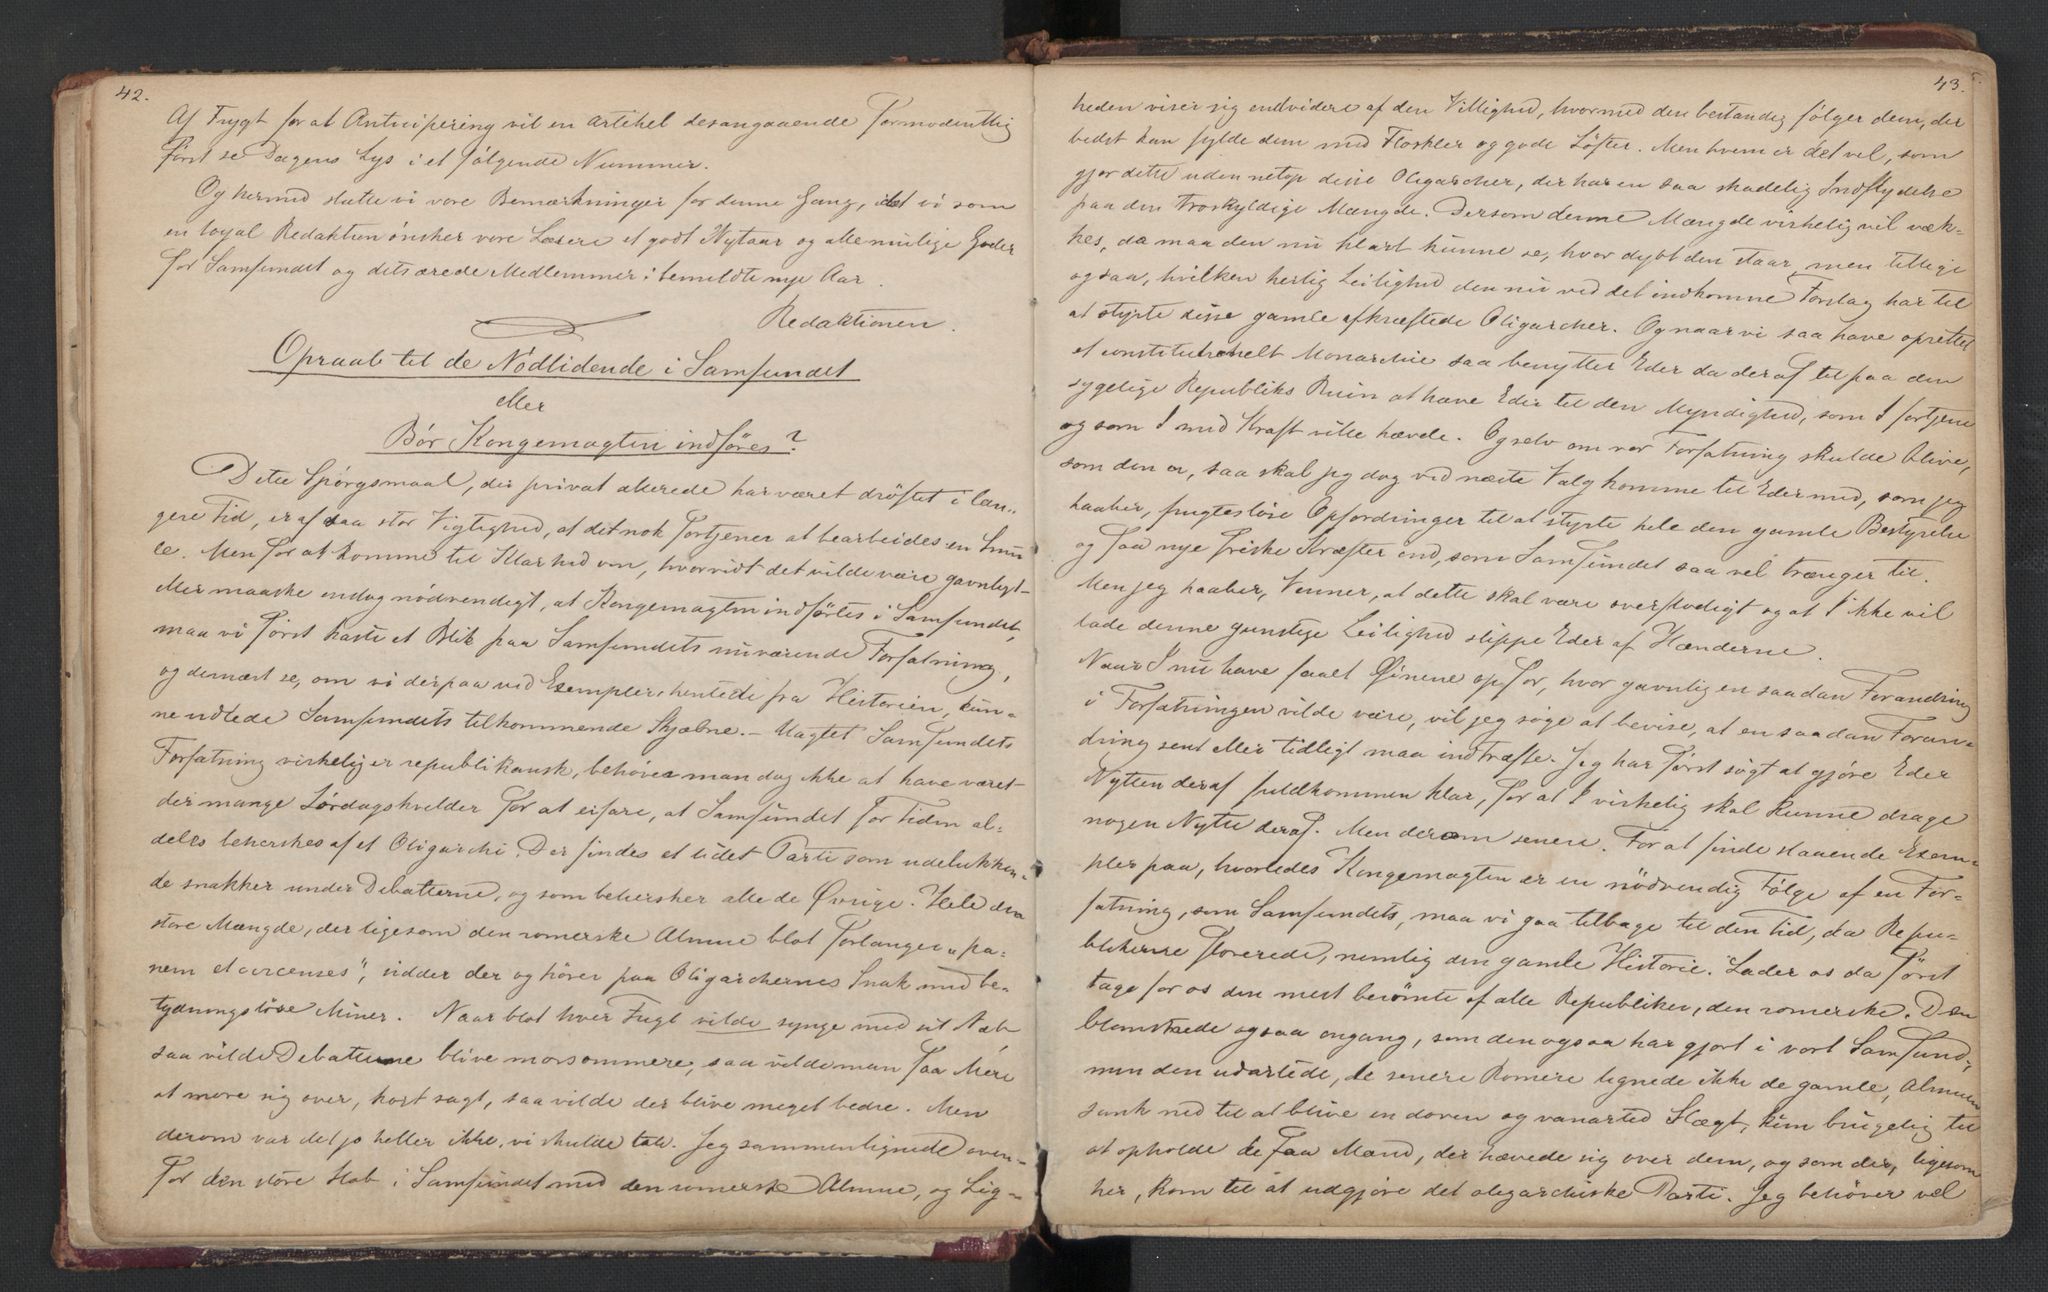 42.
Af Frygt for at Anticipering vil en Artikel desangaaende formodentlig
først se Dagens Lys i et følgende Nummer.
Og hermed slutte vi vore Bemærkninger for denne Gang, idet vi som
en loyal Redaktion ønsker vore Læsere et godt Nytaar og alle mulige Goder
for Samfundet og dets ærede Medlemmer i bemeldte nye Aar.
Redaktionen.
Opraab til de Nödlidende i Samfundet
eller
Bör Kongemagten indföres?
Dette Spörgsmaal, der privat allerede har været dröftet i læn-
gere Tid, er af saa stor Vigtighed, at det nok fortjener at bearbeides en Smu
le. Men for at komme til Klarhed om, hvorvidt det vilde være gavnligt -
eller maaske endog nödvendigt, at Kongemagten indförtes i Samfundet,
maa vi först kaste et Blik paa Samfundets nuværende Forfatning,
og dernæst se, om vi derpaa ved Exempler, hentede fra Historien, kun-
ne udlede Samfundets tilkommende Skjæbne. - Uagtet Samfundets
Forfatning virkelig er republikansk, behöver man dog ikke at have været
der mange Lördagskvelder for at erfare, at Samfundet for Tiden al-
deles beherskes af et Oligarchi. Der findes et lidet Parti som udelukken-
de snakker under Debatterne, og som behersker alle de Øvrige. Hele den
store Mængde, der ligesom den romerske Almue blot forlanger "pa-
nem et circenses", sidder der og hörer paa Oligarchernes Snak med be-
tydningslöse Miner. Naar blot hver Fugl vilde synge med sit Næb
saa vilde Debatterne blive morsommere, saa vilde man faa Mere
at more sig over, kort sagt, saa vilde der blive meget bedre. Men
derom var det jo heller ikke, vi skulde tale. Jeg sammenlignede oven-
for den store Hob i Samfundet med den romerske Almue, og Lig-
43.
heden viser sig endvidere af den Villighed, hvormed den bestandig fölger dem, der
bedst kan fylde dem med Floskler og gode Löfter. Men hvem er det vel, som
gjør dette uden netop disse Oligarcher, der har en saa skadelig Indflydelse
paa den troskyldige Mængde. Dersom denne Mængde virkelig vil væk-
kes, da maa den nu klart kunne se, hvor dybt den staar, men tillige
ogsaa, hvilken herlig Leilighed den nu ved det indkomne Forslag har til
at styrte disse gamle afkræftede Oligarcher. Og naar vi saa have oprettet
et constitutionelt Monarchie saa benytter Eder da deraf til paa den
sygelige Republiks Ruin at hæve Eder til den Myndighed, som I fortjene
og som I med Kraft ville hævde. Og selv om vor Forfatning skulde blive,
som den er, saa skal jeg dog ved næste Valg komme til Eder med, som jeg
haaber, frugtesløse Opfordringer til at styrte hele den gamle Bestyrelse
og faa nye friske Kræfter ind, som Samfundet saa vel trænger til.
Men jeg haaber, Venner, at dette skal være overflödigt og at I ikke vil
lade denne gunstige Leilighed slippe Eder af Hænderne.
Naar I nu have faaet Øinene op for, hvor gavnlig en saadan Forandring
i Forfatningen vilde være, vil jeg söge at bevise, at en saadan Foran-
dring sent eller tidligt maa indtræffe. Jeg har först sögt at gjöre Eder
Nytten deraf fuldkommen klar, for at I virkelig skal kunne drage
nogen Nytte deraf. Men derom senere. For at finde slaaende Exem-
pler paa, hvorledes Kongemagten er en nödvendig Fölge af en For-
fatning, som Samfundets, maa vi gaa tilbage til den Tid, da Repu-
blikerne florerede, nemlig den gamle Historie. Lader os da först
tage for os den mest berömte af alle Republiker, den romerske. Den
blomstrede ogsaa engang, som den ogsaa har gjort i vort Samfund,
men den udartede, de senere Romere lignede ikke de gamle, Almuen
sank ned til at blive en doven og vanartet Slægt, kun brugelig til
at opholde de faa Mænd, der hævede sig over dem, og som der, ligesom
her, kom til at udgjöre det oligarchiske Parti. Jeg behöver vel